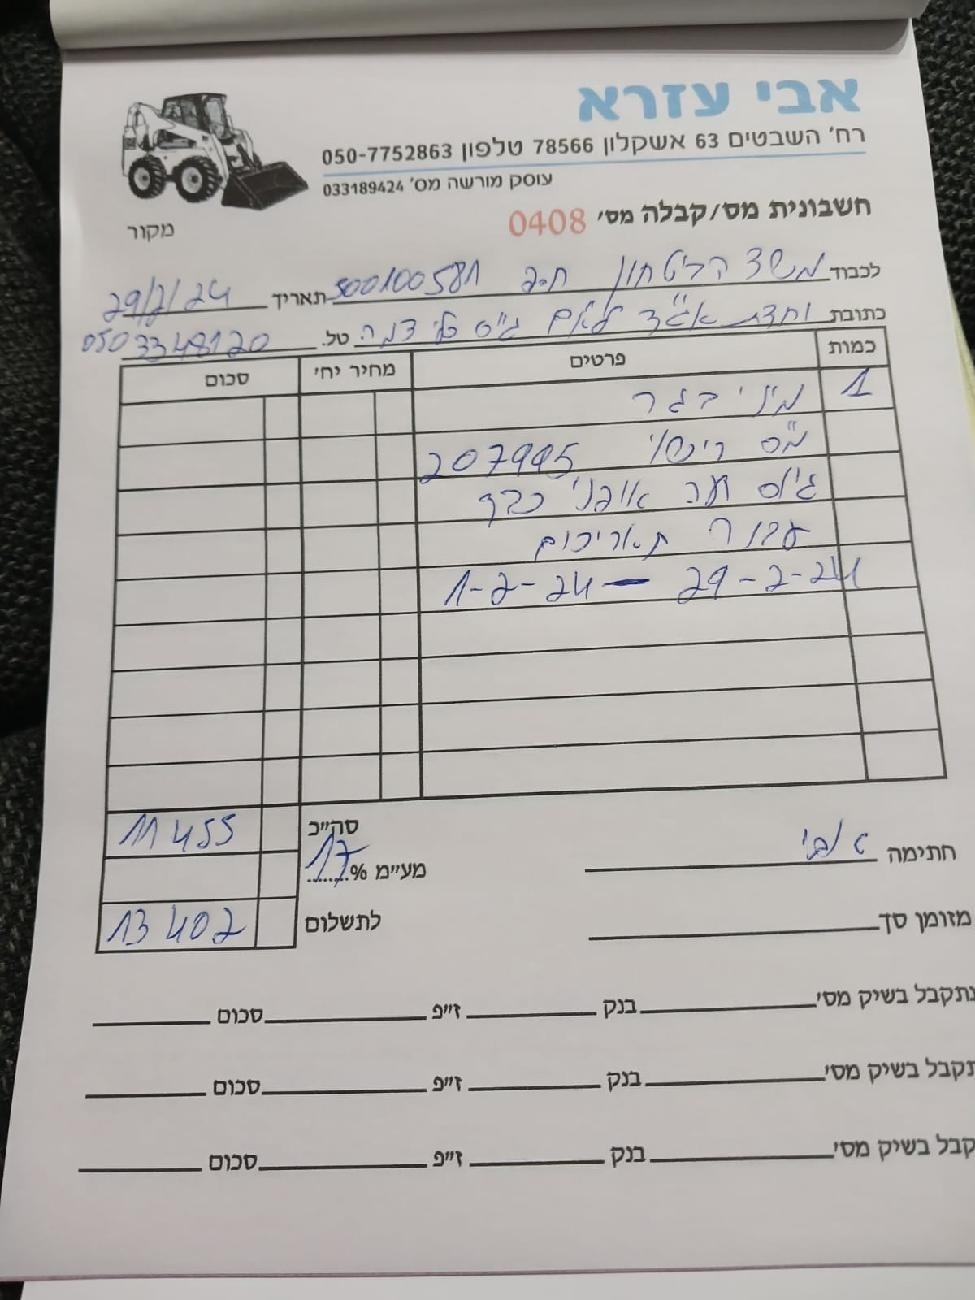 אבי עזרא
רח׳ השבטים 63 אשקלון 78566 טלפון 050-7752863
עוסק מורשה מס׳ 033189424
חשבונית מס/קבלה מס׳ 0408
מקור
לכבוד משרד הביטחון ח.פ 500100581 תאריך 29/2/24
כתובת וחדת אג"ד גיוס כלי צמה טל. 0503348120
כמות פרטים מחיר יח׳ סכום
1 מיני בגר
מס רישוי 207995
גיוס אופני כבד
עבור תאריכים
1-2-24 — 29-2-24
סה״כ 11455
מע״מ % 17
לתשלום 13402
חתימה אבי
מזומן סך
נתקבל בשיק מס׳ בנק ז״פ סכום
תקבל בשיק מס׳ בנק ז״פ סכום
קבל בשיק מס׳ בנק ז״פ סכום